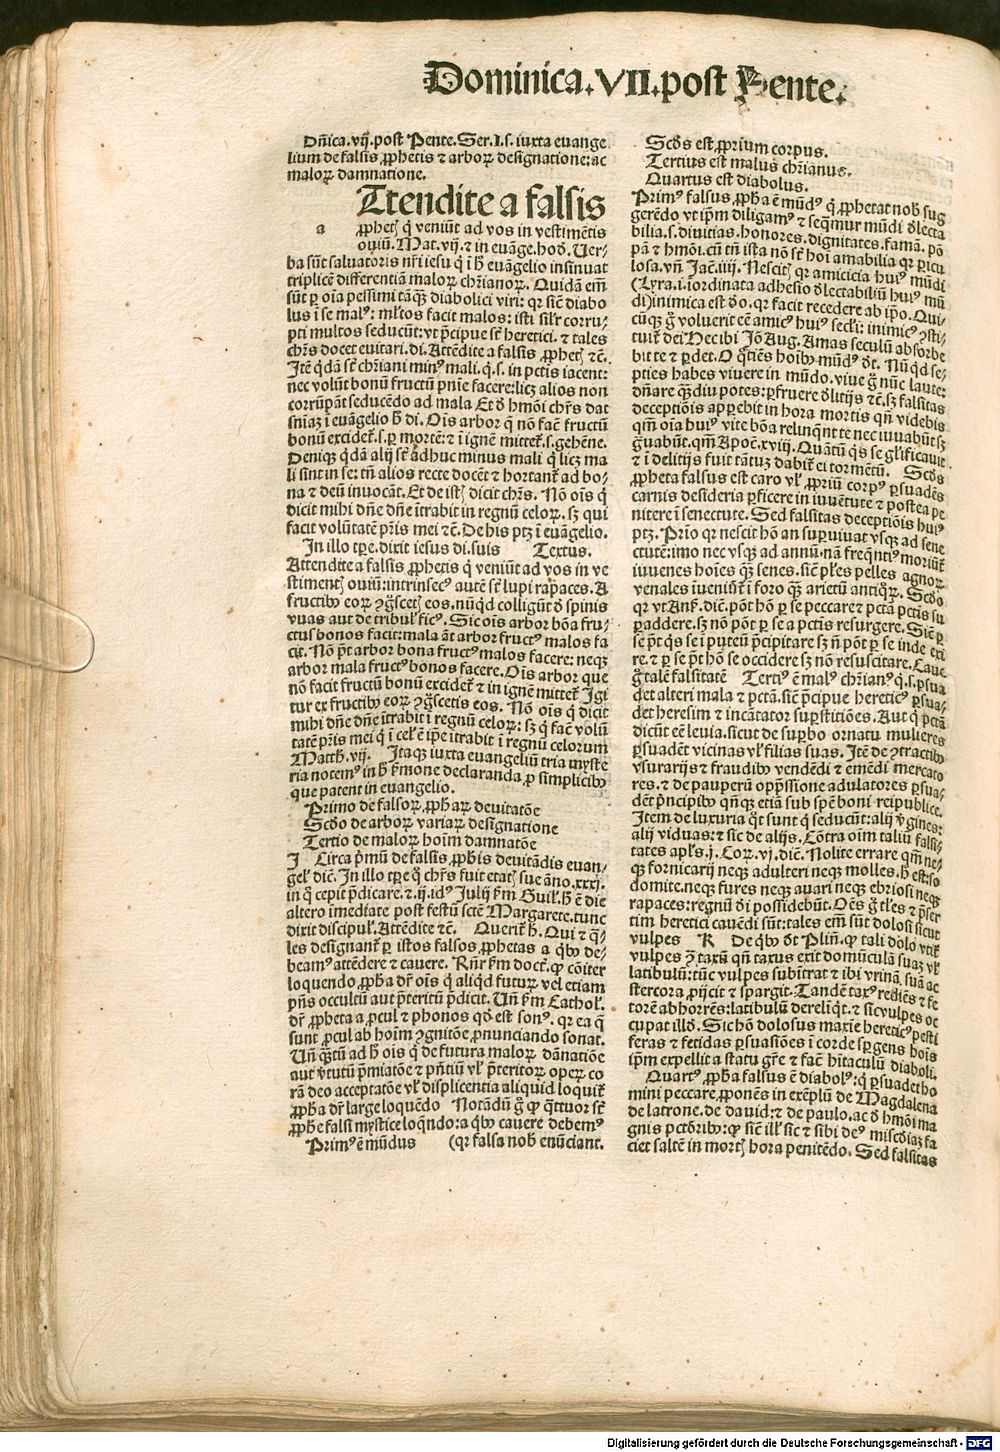 Dominica.VII.post Pente.
Dñica.vij.post Pente.Ser.I.s.iuxta euange
lium de falsis ꝓphetis ⁊ arboꝝ designatione:ac
maloꝝ damnatione.
Ttendite a falsis
a ꝓphetꝭ q̇ veniũt ad vos in vestimẽtis
ouiũ. Mat. vij. ⁊ in euãge. hod̾. Uer-
ba sũt saluatoris nr̃i iesu q̇ ĩ h̾ euãgelio insinuat
triplicẽ differentiã maloꝝ chr̃ianoꝝ. Quidã em̃
sũt ꝑ oĩa pessimi tãqꝫ diabolici viri: qꝛ sic̃ diabo
lus ĩ se malꝰ: ml̾tos facit malos: isti sil̾r corru-
pti multos seducũt: vt p̃cipue st̃ heretici. ⁊ tales
chr̃s docet euitari. di. Attẽdite a falsis ꝓphetꝭ ⁊c̃.
Itẽ q̇dã st̃ chr̃iani minꝰ mali. q̇. s. in pctĩs iacent:
nec volũt bonũ fructũ pñie facere: licꝫ alios non
corrũpãt seducẽdo ad mala Et d̾ hmõi chr̃s dat
sñiaꝫ ĩ euãgelio h̾ di. Oĩs arbor q̃ nõ fac̃ fructũ
bonũ excidet᷑. s. ꝑ mortẽ: ⁊ ĩ ignẽ mittet᷑. s. gehẽne.
Deniqꝫ q̇dã alij st̃ adhuc minus mali q̇ licꝫ ma
li sint in se: tñ alios recte docẽt ⁊ hortant᷑ ad bo-
na ⁊ deũ inuocãt. Et de istꝭ dicit chr̃s. Nõ oĩs q̇
dicit mihi dñe dñe ĩtrabit ĩ regnũ celoꝝ. sꝫ qui
facit volũtatẽ pr̃is mei ⁊c̃. De his ptꝫ ĩ euãgelio.
In illo tp̃e. dixit iesus di. suis Textus.
Attendite a falsis ꝓphetis q̇ veniũt ad vos in ve
stimentꝭ ouiũ: intrinsecꝰ autẽ st̃ lupi rapaces. A
fructibꝰ eoꝝ ꝯg̃scetꝭ eos. nũqd colligũt d̾ spinis
vuas aut de tribul̾ ficꝰ. Sic oĩs arbor bõa fru-
ctus bonos facit: mala ãt arbor fructꝰ malos fa
cit. Nõ p̃t arbor bona fructꝰ malos facere: neqꝫ
arbor mala fructꝰ bonos facere. Oĩs arbor que
nõ facit fructũ bonũ excidet᷑ ⁊ in ignẽ mittet᷑ Igi
tur ex fructibꝰ eoꝝ ꝯg̃scetis eos. Nõ oĩs q̇ dicit
mihi dñe dñe ĩtrabit ĩ regnũ celoꝝ: sꝫ q̇ fac̃ volũ
tatẽ pr̃is mei q̇ ĩ cel̾ ẽ ip̃e ĩtrabit ĩ regnũ celorum
Matth. vij. Itaqꝫ iuxta euangeliũ tria myste
ria notemꝰ in h̾ ẜmone declaranda ꝓ simplicibꝰ
que patent in euangelio.
Primo de falsoꝝ ꝓphaꝝ deuitatõe
Scd̾o de arboꝝ variaꝝ designatione
Tertio de maloꝝ hoĩm damnatõe
I Circa p̃mũ de falsis ꝓphis deuitãdis euan-
gel̾ diẽ. In illo tp̃e q̇ chr̃s fuit etatꝭ sue ãno. xxxj.
in q̇ cepit p̃dicare. ⁊. ij. idꝰ Julij ẜm Guil̾. h̾ ẽ die
altero ĩmediate post festũ sctẽ Margarete. tunc
dixit discipul̾. Attẽdite ⁊c̃. Querit᷑ h̾. Qui ⁊ q̃-
les designant᷑ ꝑ istos falsos ꝓphetas a qbꝰ de-
beamꝰ attẽdere ⁊ cauere. Rñr ẜm doct᷑. ꝙ cõiter
loquendo ꝓpha dr̃ oĩs q̇ aliqd futuꝝ vel etiam
pñs occultũ aut p̃teritũ p̃dicit. Uñ ẜm Cathol̾.
dr̃ ꝓpheta a ꝓcul ⁊ phonos qd̾ est sonꝰ. qꝛ ea q̃
sunt ꝓcul ab hoĩm ꝯgnitõe ꝓnunciando sonat.
Uñ q̃stũ ad h̾ oĩs q̇ de futura maloꝝ dãnatiõe
aut v̾tutũ p̃miatõe ⁊ pñtiũ vl̾ p̃teritoꝝ opeꝝ co
rã deo acceptatõe vl̾ displicentia aliquid loquit᷑
ꝓpha dr̃ large loquẽdo Notãdũ g̃ ꝙ q̃ttuor st̃
ꝓphe falsi mystice loqñdo: a qbꝰ cauere debemꝰ
Primꝰ ẽ mũdus (qꝛ falsa nob̾ enũciant.
Scd̾s est ꝓprium corpus.
Tertius est malus chr̃ianus.
Quartus est diabolus.
Primꝰ falsus ꝓpha ẽ mũdꝰ q̇ ꝓphetat nob̾ sug
gerẽdo vt ip̃m diligamꝰ ⁊ seq̃mur mũdi d̾lecta
bilia. s. diuitias. honores. dignitates. famã. põ
pã ⁊ hmõi. cũ tñ ista nõ st̃ hoĩ amabilia qꝛ ꝑicu
losa. vñ. Jac̃. iiij. Nescitꝭ qꝛ amicicia huiꝰ mũdi
(Lyra. i. ĩordinata adhesio d̾lectabiliũ huiꝰ mũ
di) inimica est d̾o. qꝛ facit recedere ab ip̃o. Qui-
cũqꝫ g̃ voluerit eẽ amicꝰ huiꝰ secl̾i: inimicꝰ ꝯsti-
tuit᷑ dei Hec ibi Jõ Aug. Amas seculũ absorbe
bit te ⁊ ꝑdet. O q̃tiẽs hoĩbꝰ mũdꝰ d̾t. Nũqd se-
pties habes viuere in mũdo. viue g̃ nũc laute:
dñare qꝫdiu potes: ꝑfruere d̾litijs ⁊c̃. sꝫ falsitas
deceptiõis apꝑebit in hora mortis qñ videbis
qm̃ oĩa huiꝰ vite bõa relinqñt te nec iuuabũt sꝫ
g̃uabũt. qm̃ Apoc̃. xviij. Quãtũ qs se gl̾ificauit
⁊ ĩ delitijs fuit tãtuꝫ dabit᷑ ei tormẽtũ. Scd̾s
ꝓpheta falsus est caro vl̾ ꝓpriũ corpꝰ ꝑsuadẽs
carnis desideria ꝑficere in iuuẽtute ⁊ postea pe
nitere ĩ senectute. Sed falsitas deceptiõis huiꝰ
ptꝫ. Prĩo qꝛ nescit hõ an suꝑuiuat vsqꝫ ad sene
ctutẽ: imo nec vsqꝫ ad annũ. nã freq̃ntiꝰ moriũt᷑
iuuenes hoĩes qꝫ senes. sic̃ pl̾es pelles agnoꝝ
venales ĩueniũt᷑ ĩ foro qꝫ arietũ antiq̃ꝝ. Scd̾o
qꝛ vt Anẜ. dic̃. põt hõ ꝑ se peccare ⁊ pctã pctĩs su
ꝑaddere. sꝫ nõ põt ꝑ se a pctĩs resurgere. Sic̃ ꝑ
se p̃t qs se ĩ puteũ p̃cipitare sꝫ ñ põt ꝑ se inde exi
re. ⁊ ꝑ se p̃t hõ se occidere sꝫ nõ resuscitare. Caue
g̃ talẽ falsitatẽ Tertiꝰ ẽ malꝰ chr̃ianꝰ q̇. s. ꝑsua
det alteri mala ⁊ pctã. sic̃ p̃cipue hereticꝰ ꝑsua-
det heresim ⁊ incãtator suꝑstitiões. Aut q̇ pctã
dicũt eẽ leuia. sicut de suꝑbo ornatu mulieres
ꝑsuadẽt vicinas vl̾ filias suas. Itẽ de ꝯtractibꝰ
vsurarijs ⁊ fraudibꝰ vendẽdi ⁊ emẽdi mercato
res. ⁊ de pauperũ opp̃ssione adulatores ꝑsua-
dẽt p̃ncipibꝰ qñqꝫ etiã sub spẽ boni reipublice.
Item de luxuria q̇t sunt q̇ seducũt: alij v̾gines:
alij viduas: ⁊ sic de alijs. Cõtra oĩm taliũ falsi-
tates apl̾s. j. Coꝝ. vj. dic̃. Nolite errare qm̃ ne-
qꝫ fornicarij neqꝫ adulteri neqꝫ molles. h̾ est. so
domite. neqꝫ fures neqꝫ auari neqꝫ ebriosi neqꝫ
rapaces: regnũ d̾i possidebũt. Oẽs g̃ tl̾es ⁊ p̃ser
tim heretici cauẽdi sũt: tales em̃ sũt dolosi sicut
vulpes K De qbꝰ d̾t Plin̾. ꝙ tali dolo vtit᷑
vulpes ꝯ̃ taxũ qñ taxus exit domũculã suaꝫ vl̾
latibulũ: tũc vulpes subĩtrat ⁊ ibi vrinã suã ac
stercora ꝓijcit ⁊ spargit. Tandẽ taxꝰ rediẽs ⁊ fe
torẽ abhorrẽs: latibulũ dereliq̇t. ⁊ sic vulpes oc
cupat illd̾. Sic hõ dolosus maxĩe hereticꝰ pesti
feras ⁊ fetidas ꝑsuasiões ĩ corde spergens hoĩs
ip̃m expellit a statu gr̃e ⁊ fac̃ hĩtaculũ diaboli.
Quartꝰ ꝓpha falsus ẽ diabolꝰ: q̇ ꝑsuadet ho
mini peccare ꝓponẽs in exẽplũ de Magdalena
de latrone. de dauid: ⁊ de paulo. ac d̾ hmõi ma
gnis pctõribꝰ: ꝙ sic̃ ill̾ sic ⁊ sibi deꝰ miscd̾iaꝫ fa
ciet saltẽ in mortꝭ hora penitẽdo. Sed falsitas
Digitalisierung gefördert durch die Deutsche Forschungsgemeinschaft - DFG